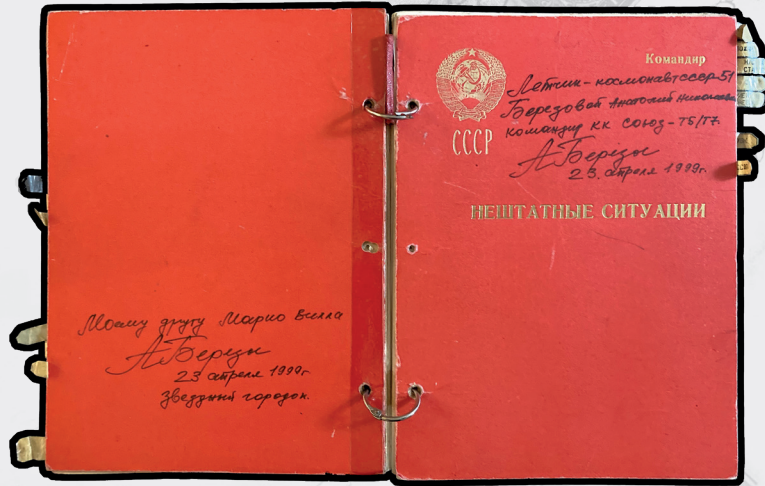 Моему другу Марио Билла
А.Березы
23 апреля 1999г
Звездный городок.
Командир
Летчик-космонавт СССР-51
Березовой Анатолий Николаевич
командир КК Союз-Т5/Т7
А.Березы
23. апреля 1999г.
СССР
НЕШТАТНЫЕ СИТУАЦИИ